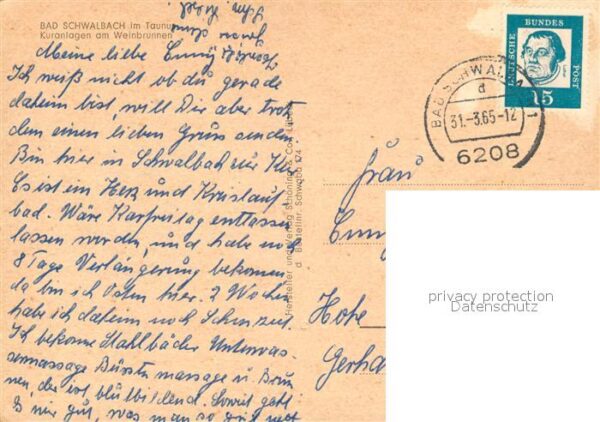 BAD SCHWALBACH im Taunus
Kuranlagen am Weinbrunnen
Meine liebe Enny
Ich weiß nicht ob du gerade
daheim bist, will Dir aber trotz
dem einen lieben Gruss senden
Bin hier in Schwalbach zur Kur
Es ist ein Herz und Kreislauf
bad. Wäre Karfreitag entlassen
lassen worden, und habe noch
8 Tage Verlängerung bekommen
da bin ich Ostern hier. 2 Wochen
habe ich daheim noch Schonzeit.
Ich bekomme Stahlbäder Unterwas-
sermassage Bürsten massage u. Brun
nen, der ist blutbildend. Soweit geht
es mir gut, was man so
Hersteller und Verlag Schöning & Co
Bestellnr. Schwaba 174
DEUTSCHE BUNDES POST
15
BAD SCHWALBACH 1
d
31.-3.65-12
6208
Frau
Enny
Hohe
Gerha
privacy protection
Datenschutz